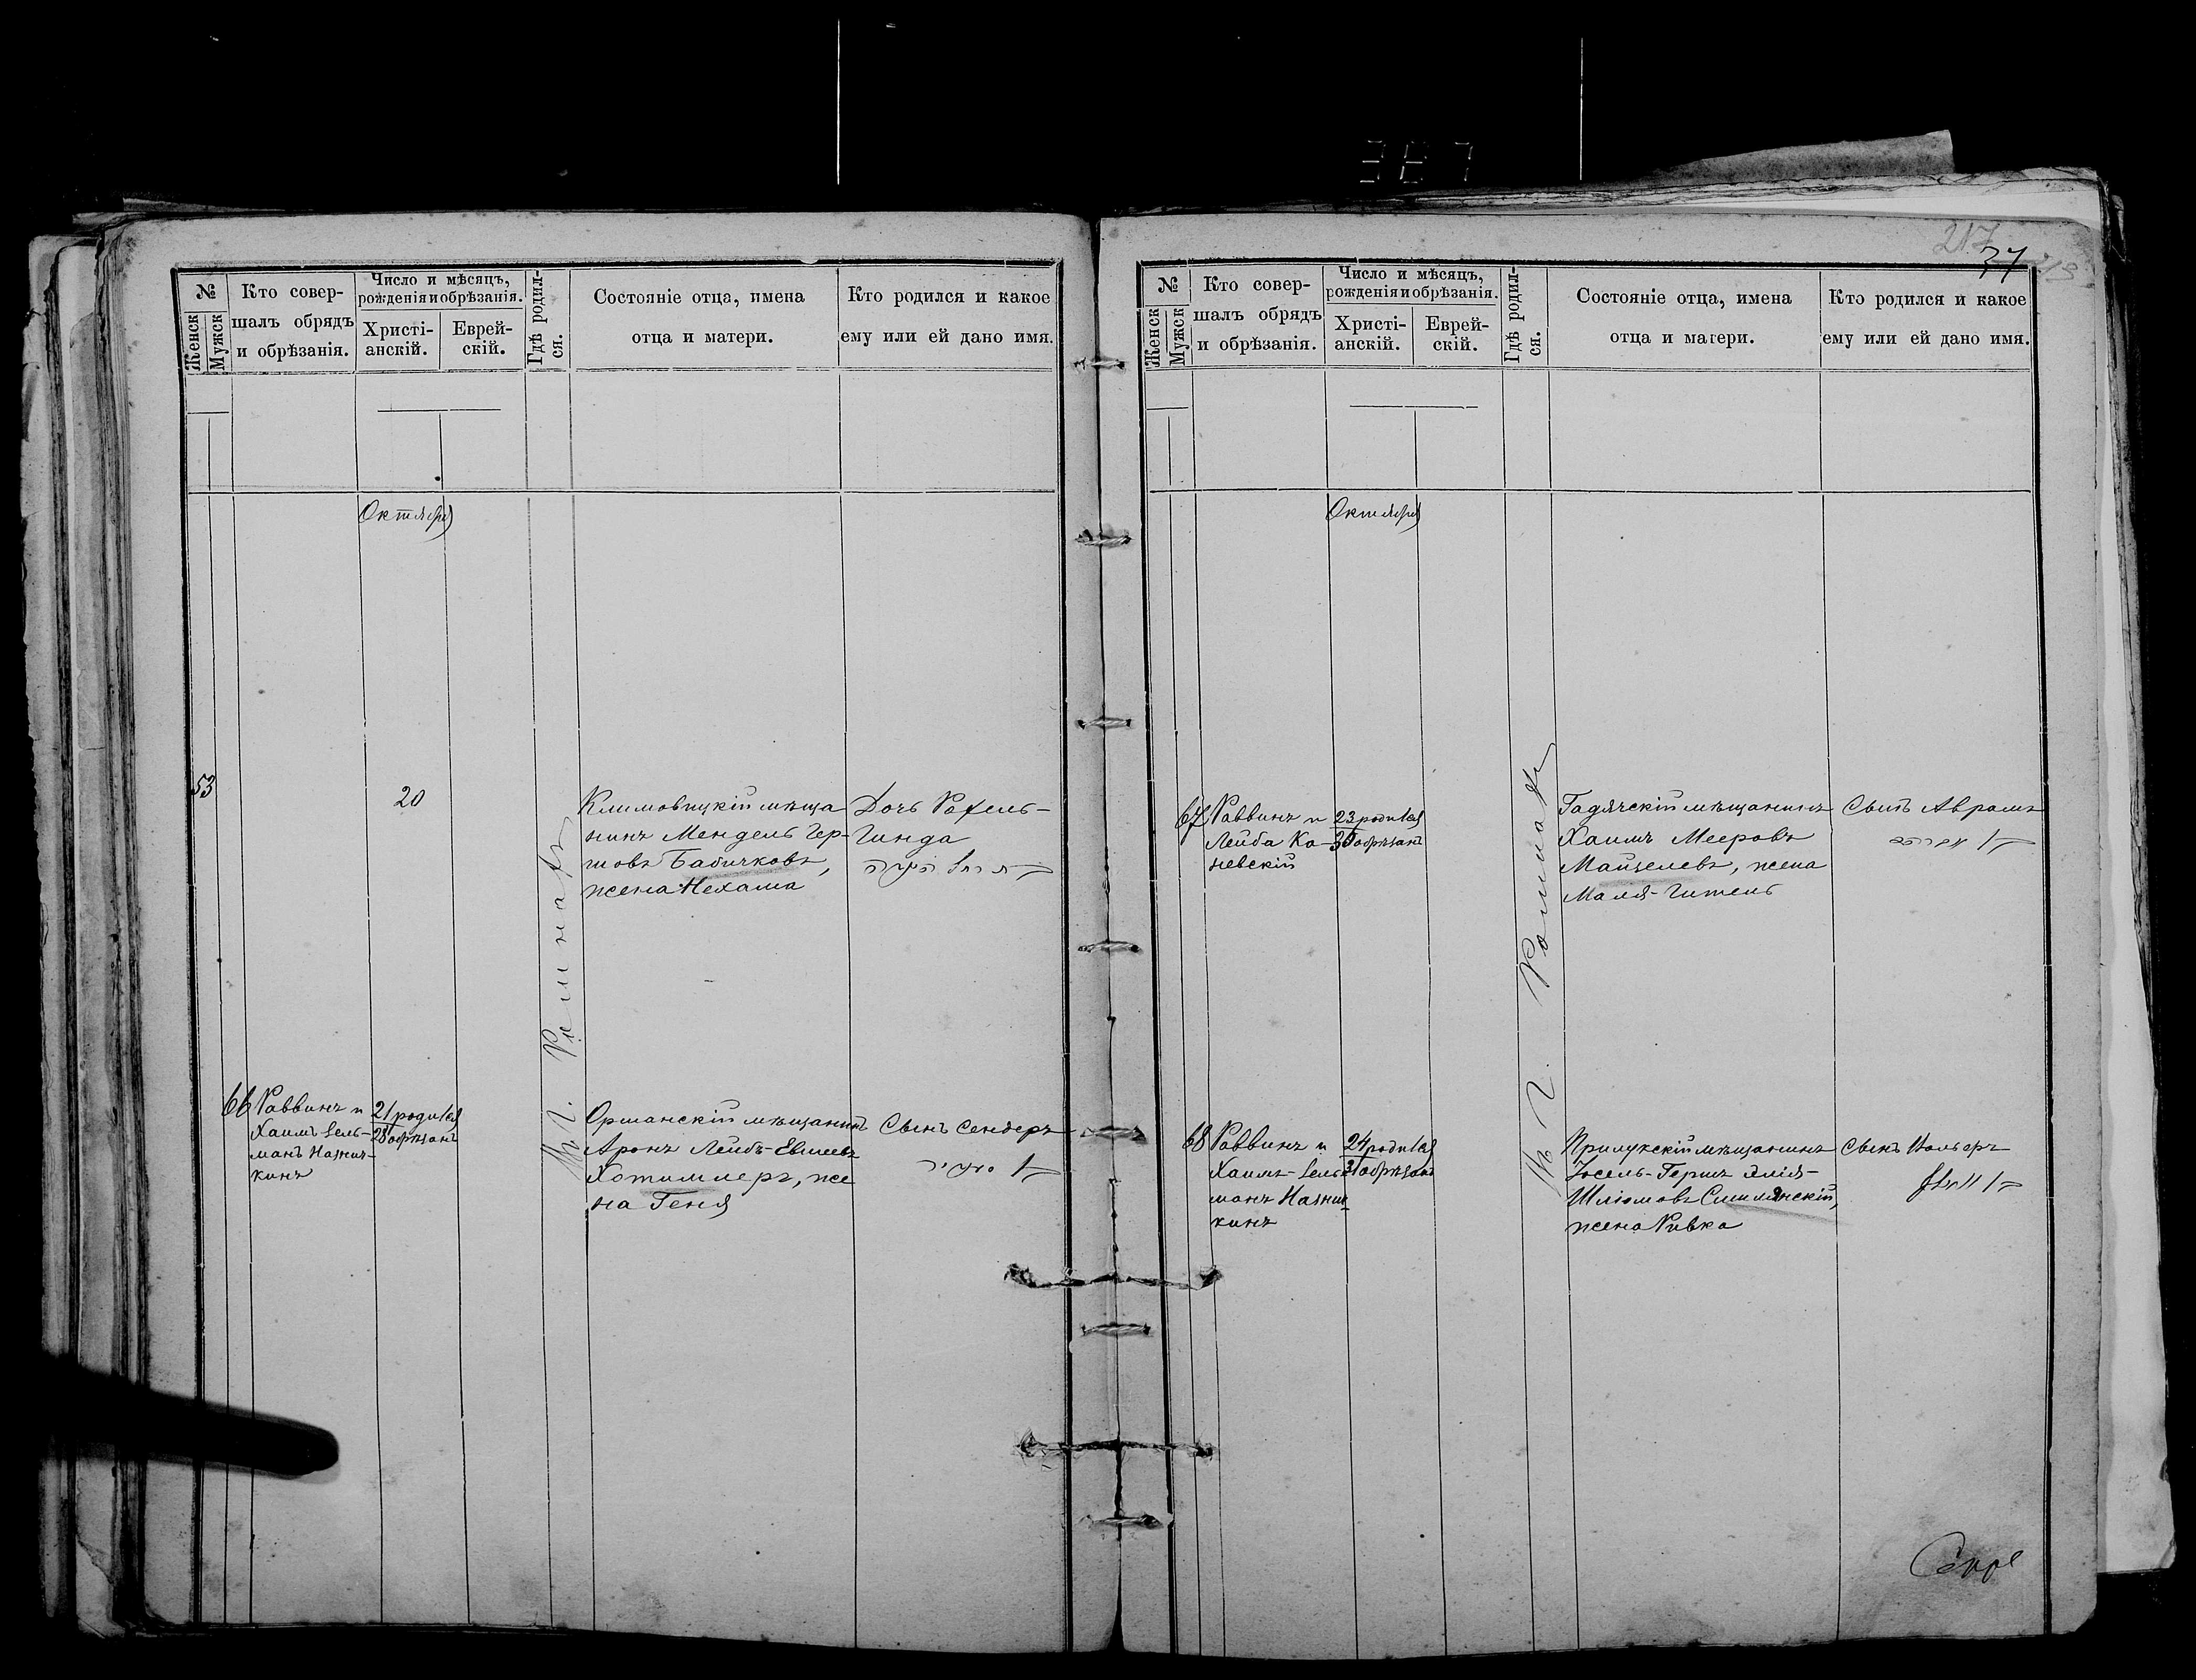 №
Женск
Мужск
Кто совер-
шалъ обрядъ
и обрѣзанія.
Число и мѣсяцъ,
рожденія и обрѣзанія.
Христі-
анскій.
Еврей-
скій.
Гдѣ родил-
ся.
Состояніе отца, имена
отца и матери.
Кто родился и какое
ему или ей дано имя.
Октября
Въ г. Ромнахъ
53
20
Климовицкій мѣща
нинъ Мендель Гер-
шовъ Бабичковъ,
жена Нехама
Дочь Рохель-
Гинда
66
Раввинъ и
Хаимъ Зель-
манъ Назин-
кинъ
21 родился
28 обрѣзанъ
Оршанскій мѣщанинъ
Аронъ Лейбъ-Евшеевъ
Хотимлеръ, же
на Геня
Сынъ Сендеръ
217
37
№
Женск
Мужск
Кто совер-
шалъ обрядъ
и обрѣзанія.
Число и мѣсяцъ,
рожденія и обрѣзанія.
Христі-
анскій.
Еврей-
скій.
Гдѣ родил-
ся.
Состояніе отца, имена
отца и матери.
Кто родился и какое
ему или ей дано имя.
Октября
Въ г. Ромнахъ
67
Раввинъ и
Лейба Ка-
невскій
23 родился
30 обрѣзанъ
Гадячскій мѣщанинъ
Хаимъ Мееровъ
Майзелевъ, жена
Маля-Гитель
Сынъ Аврамъ
68
Раввинъ и
Хаимъ-Зель
манъ Назин
кинъ
24 родился
31 обрѣзанъ
Прилукскій мѣщанинъ
Іосель-Гершъ Элія-
Шліомовъ Смилянскій,
жена Ривка
Сынъ Вольфъ